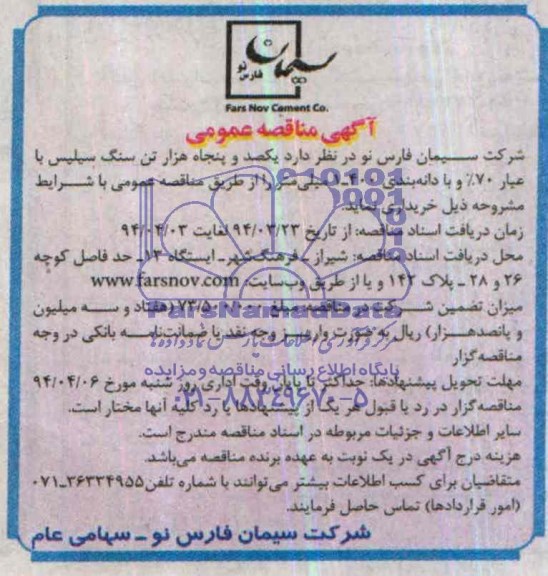 سیمان
فارس نو
Fars Nov Cement Co.
آگهی مناقصه عمومی
شرکت سیمان فارس نو در نظر دارد یکصد و پنجاه هزار تن سنگ سیلیس با
عیار ۷۰٪ و با دانه‌بندی میلی‌متر را از طریق مناقصه عمومی با شرایط
مشروحه ذیل خریداری نماید.
زمان دریافت اسناد مناقصه: از تاریخ ۹۴/۰۳/۲۳ لغایت ۹۴/۰۴/۰۳
محل دریافت اسناد مناقصه: شیراز ـ فرهنگ‌شهر ـ ایستگاه ۱۳ـ حد فاصل کوچه
۲۶ و ۲۸ ـ پلاک ۱۴۲ و یا از طریق وب‌سایت: www.farsnov.com
میزان تضمین شرکت در مناقصه: مبلغ (هفتاد و سه میلیون
و پانصدهزار) ریال به صورت واریز وجه نقد یا ضمانت‌نامه بانکی در وجه
مناقصه‌گزار
مهلت تحویل پیشنهادها: حداکثر تا پایان وقت اداری روز شنبه مورخ ۹۴/۰۴/۰۶
مناقصه‌گزار در رد یا قبول هر یک از پیشنهادها یا رد کلیه آنها مختار است.
سایر اطلاعات و جزئیات مربوطه در اسناد مناقصه مندرج است.
هزینه درج آگهی در یک نوبت به عهده برنده مناقصه می‌باشد.
متقاضیان برای کسب اطلاعات بیشتر می‌توانند با شماره تلفن ۳۶۳۳۴۹۵۵ـ۰۷۱
(امور قراردادها) تماس حاصل فرمایند.
شرکت سیمان فارس نو ـ سهامی عام
ParsNamadData
پایگاه اطلاع رسانی مناقصه و مزایده
۰۲۱-۸۸۳۴۹۶۷۰-۵